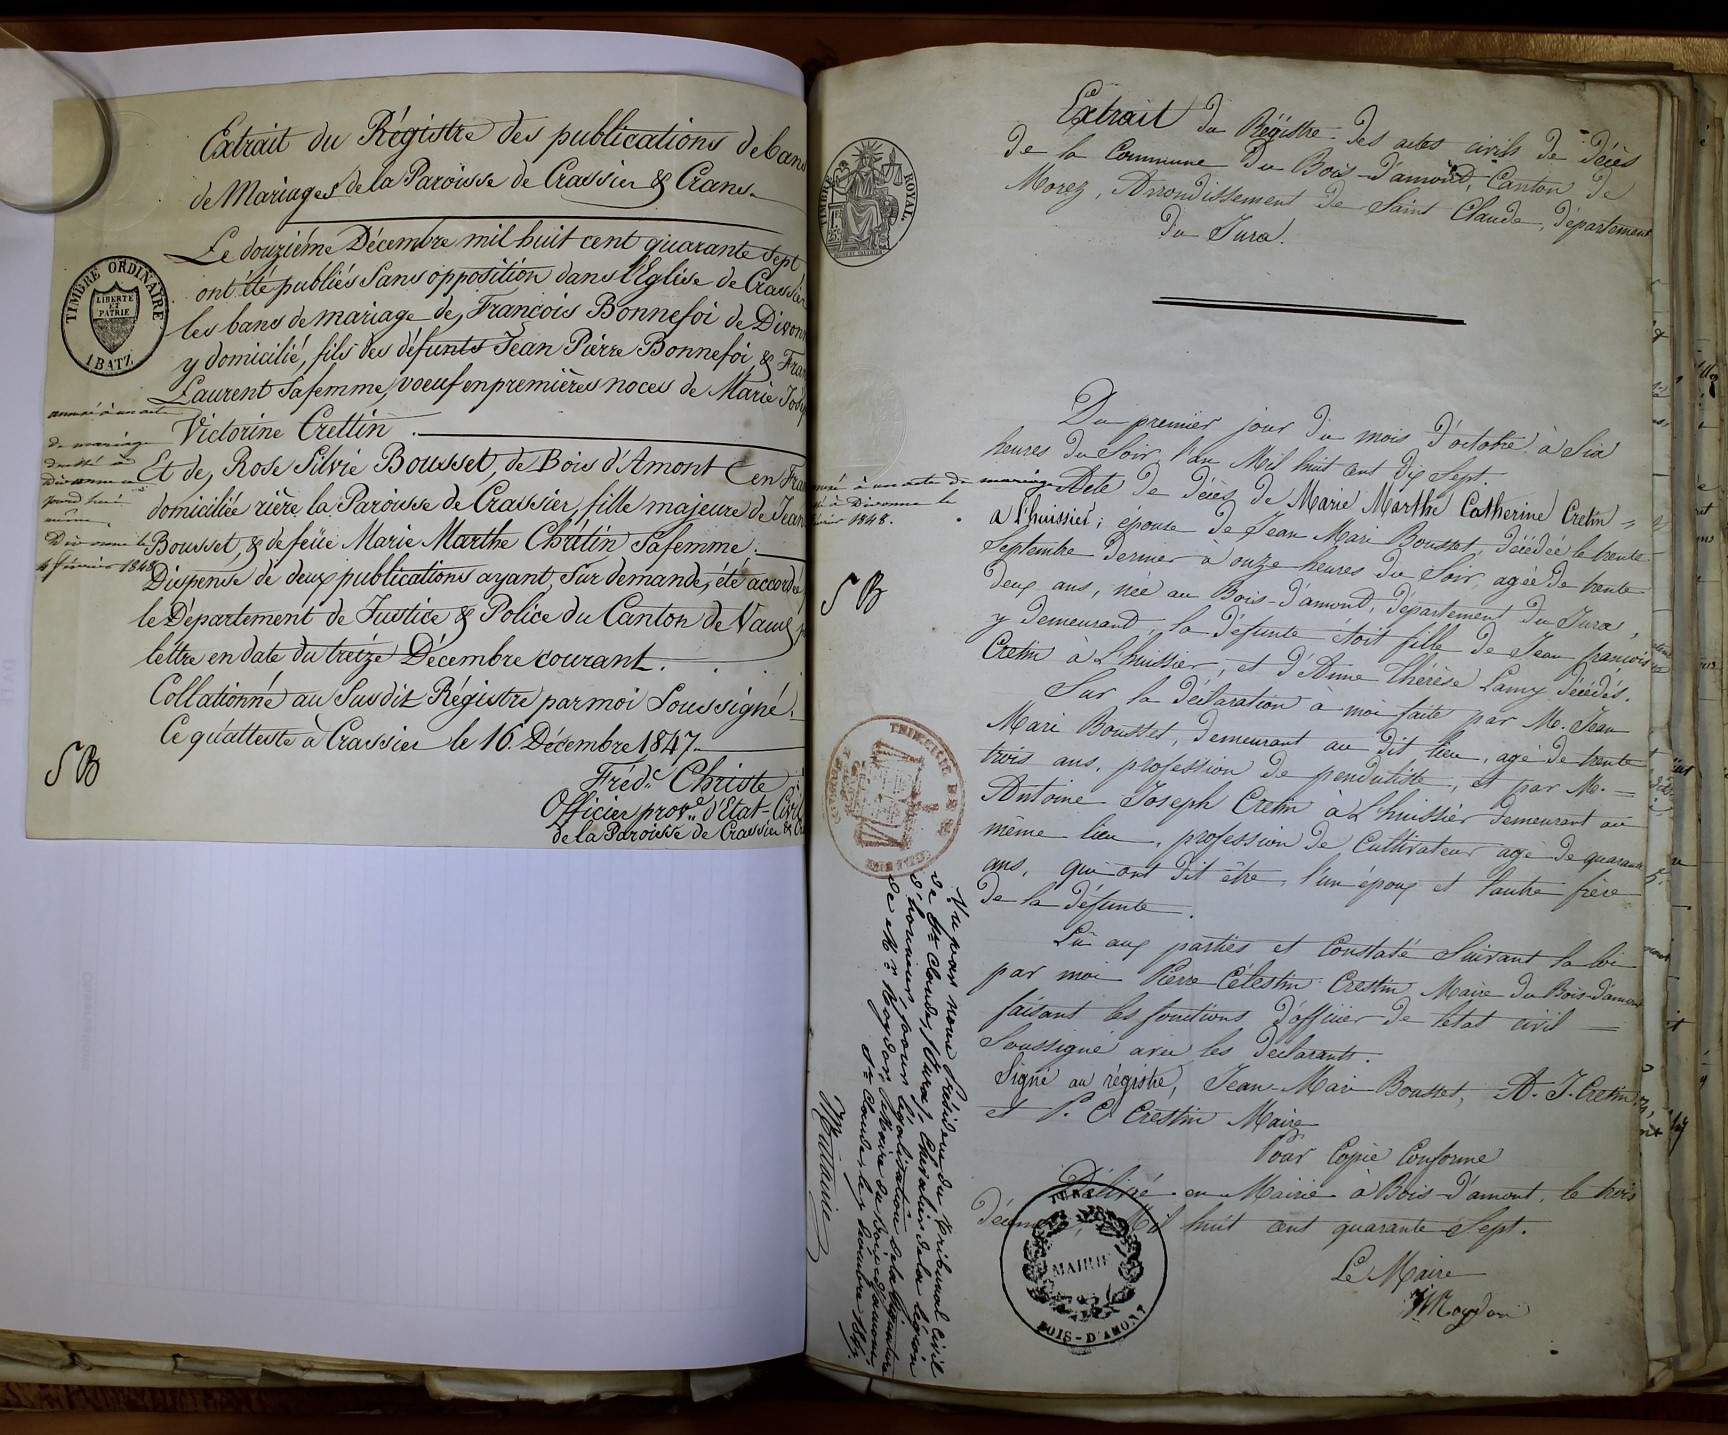 Extrait du Régistre des publications de bans
de Mariages de la Paroisse de Crassier & Crans
Le douzième Décembre mil huit cent quarante Sept
ont été publiés Sans opposition dans l'Eglise de Crassier
les bans de mariage de, François Bonnefoi de Divonn
y domicilié, fils des défunts Jean Pierre Bonnefoi, & Fran
Laurent Safemme, voeuf en premières noces de Marie Josep
Victorine Crettin.
Et de, Rose Silvie Bousset, de Bois d'Amont (en Fran
domiciliée rière la Paroisse de Crassier, fille majeure de Jean
Bousset, & de feüe Marie Marthe Chrétin Safemme.
Dispense de deux publications ayant, Sur demande, été accordée
le Département de Justice & Police du Canton de Vaud, p
lettre en date du treize Décembre courant.
Collationné au Susdit Régistre par moi Soussigné.
Ce qu'atteste à Crassier le 16. Décembre 1847.
Fréd.c Christe
Officier prov.e d'Etat-Civil
de la Paroisse de Crassier & Cr
TIMBRE ORDINAIRE
LIBERTE
ET
PATRIE
1 BATZ
annexé à un acte
de mariage
dressé à
Divonne
Divonne le
4 février 1848
S B
TIMBRE ROYAL
Extrait du Régistre des actes civils de décès
de la Commune du Bois-d'amond, Canton de
Morez, Arrondissement de Saint Claude, département
du Jura.
Du premier jour du mois d'octobre à Six
heures du Soir, l'an Mil huit cent dix Sept.
Acte de décès de Marie Marthe Catherine Cretin =
a l'huissier; épouse de Jean Marie Bousset, décédée le trente
Septembre dernier a onze heures du Soir, agée de trente
deux ans, née au Bois-d'amond, département du Jura,
y demeurand, la défunte étoit fille de Jean françois
Cretin à L'huissier, et d'Anne thérèse Lamy décédés.
Sur la déclaration à moi faite par M. Jean
Marie Bousset, demeurant au dit lieu, agé de trente
trois ans, profession de penduliste, et par M. =
Antoine Joseph Cretin à L'huissier demeurant au
même lieu, profession de Cultivateur agé de quarante
ans, qui ont dit être, l'un époux et l'autre frère
de la défunte.
Lû aux parties et Constaté Suivant la loi
par moi Pierre Célestin Crestin Maire du Bois-d'amont
faisant les fonctions d'officier de l'état civil =
Soussigné avec les déclarants.
Signé au régistre, Jean-Marie Bousset, A. J. Cretin
et P. C. Crestin Maire
Pour Copie Conforme
Délivré en Mairie à Bois-d'amont, le trois
décembre, Mil huit cent quarante Sept.
Le Maire
JURA
MAIRIE
BOIS-D'AMONT
à un acte de mariage
à Divonne le
février 1848.
S B
Vu par nous Président du Tribunal civil
de St Claude, (Jura), Chevalier de la légion
d'honneur, pour légalisation de la signature
de Mr Maire du Bois d'amont
St Claude, le